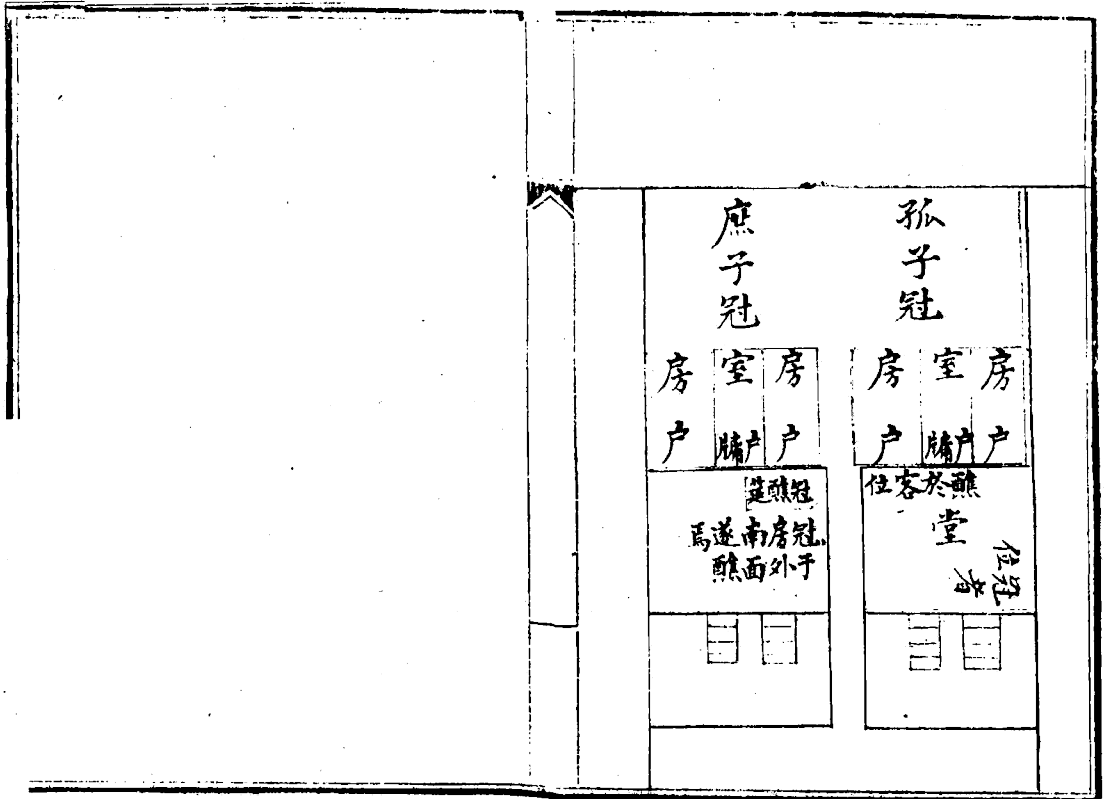 孤子冠
房 室 房
户 户牖 户
醮於客位
堂
冠者位
庶子冠
房 室 房
户 户牖 户
冠醮筵
冠于房外南面遂醮焉